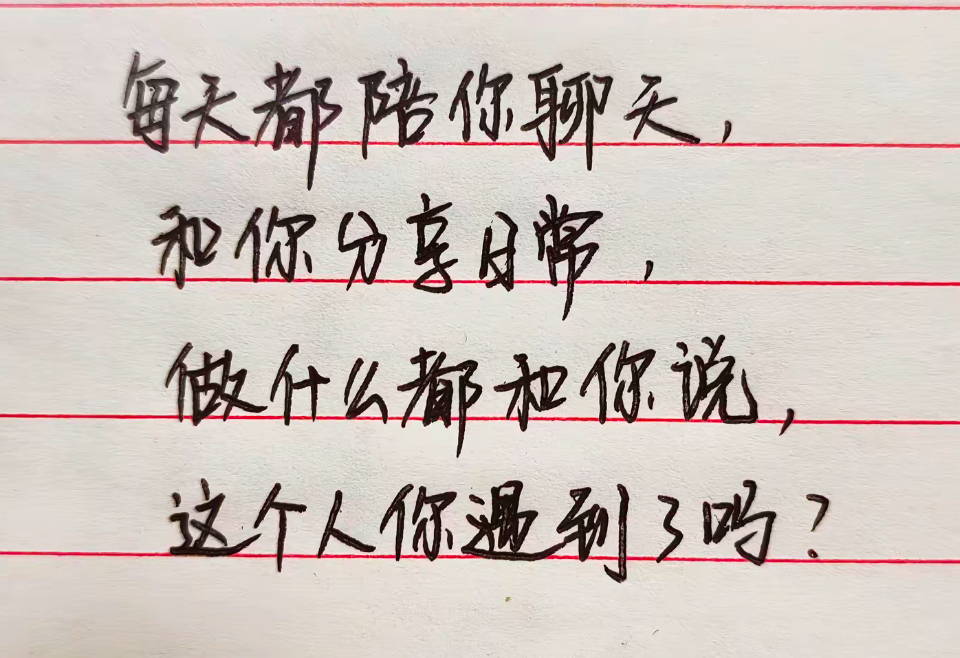 每天都陪你聊天，
和你分享日常，
做什么都和你说，
这个人你遇到了吗？